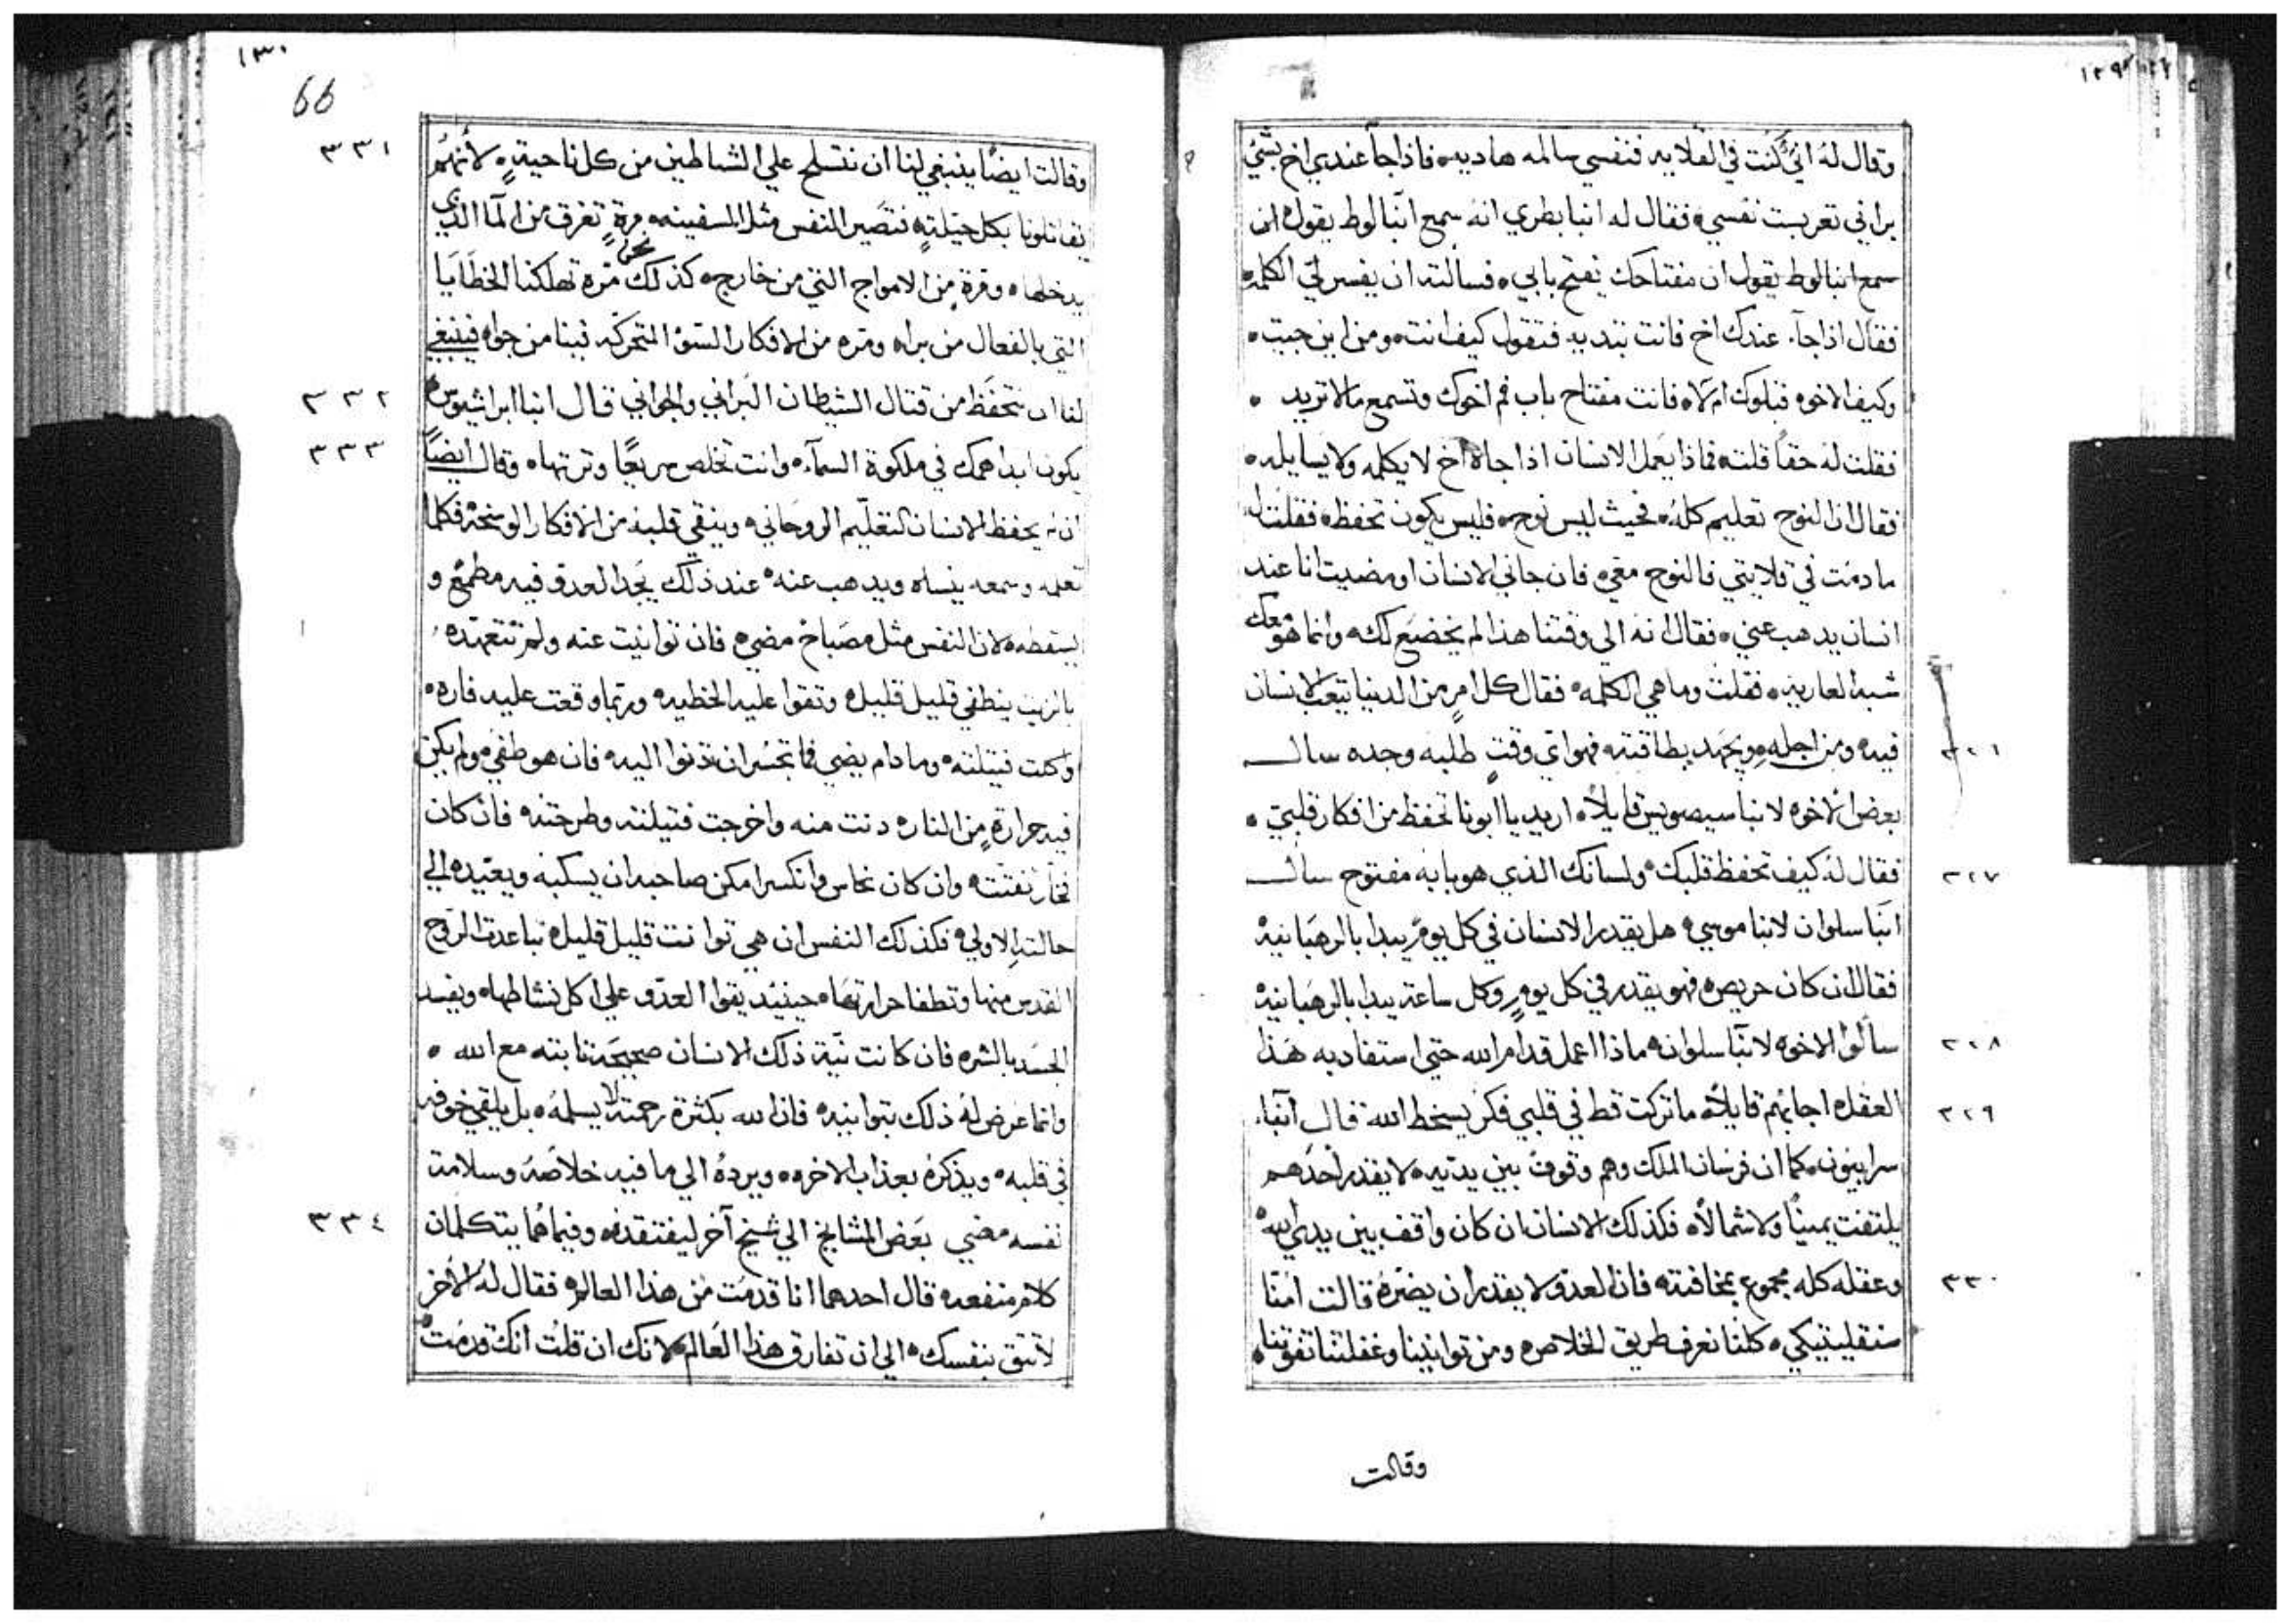 وقال له اني كنت في القلايه فنفسي سالمه هاديه فاذا جا عندي اخ بشي
براني تعربست نفسي فقال له انبا بطري انه سمع انبا لوط يقول ان
سمع انبا لوط يقول ان مفتاحك يفتح بابي فسالته ان يفسر لي الكلمه
فقال اذا جآء عندك اخ فانت تبتديه فتقول كيف انت ومن اين جيت
وكيف الاخوه قبلوك ام لا فانت مفتاح باب فم اخوك وتسمع ما لا تريد
فقلت له حقاً قلته فماذا يعمل الانسان اذا جاه اخ لا يكلمه ولا يسايله
فقال ان النوح تعليم كله فحيث ليس نوح فليس يكون تحفظ فقلت له
ما دمت في قلايتي فالنوح معي فان جاني الانسان او مضيت انا عند
انسان يدهب عني فقال انه الي وقتنا هذا لم يخضع لك وانما هو معك
شبه العاريه فقلت وما هي الكلمه فقال كل امرٍ من الدنيا يتعب الانسان
٣٢٦
فيه ومن اجله ويجهد بطاقته فهو اي وقتٍ طلبه وجده سال
بعض الاخوه لانبا سيصويص قايلاً اريد يا ابونا تحفظ من افكار قلبي
٣٢٧
فقال له كيف تحفظ قلبك ولسانك الذي هو بابه مفتوح سال
انبا سلوان لانبا موسي هل يقدر الانسان في كل يوم يبدا بالرهبانيه
فقال ان كان حريص فهو يقدر في كل يومٍ وكل ساعة يبدا بالرهبانيه
٣٢٨
سالوا الاخوه لانبا سلوان ماذا اعمل قدام الله حتي استفاد به هذا
٣٢٩
العقل اجابهم قايلاً ما تركت قط في قلبي فكر يسخط الله قال انبا
سرابيون كما ان فرسان الملك وهم وقوف بين يديه لا يقدر احدهم
يلتفت يميناً ولا شمالاً فكذلك الانسان ان كان واقف بين يدي الله
٣٣٠
وعقله كله مجموع بمخافته فان العدو لا يقدر ان يضره قالت امنا
سنقليتيكي كلنا نعرف طريق الخلاص ومن توانينا وغفلتنا تفوتنا
وقالت
١٣٠
66
٣٣١
وقالت ايضاً ينبغي لنا ان نتسلح علي الشياطين من كل ناحيةٍ لانهم
يقاتلونا بكل حيلةٍ فتصير النفس مثل السفينه مرةٍ تغرق من المآ الذي
يدخلها ومرة من الامواج التي من خارج كذلك نحن مرة تهلكنا الخطايا
التي بالفعال من برا ومره من الافكار السَو المتحركه فينا من جوا فينبغي
٣٣٢
لنا ان نتحفظ من قتال الشيطان البراني والجواني قال انبا
٣٣٣
يكون ابدا همك في ملكوة السمآء وانت تخلص سريعاً وترتها وقال ايضاً
ان لم يحفظ الانسان التعليم الروحاني وينقي قلبه من الافكار الوسخه فكلما
تعلمه وسمعه ينساه ويدهب عنه عند ذلك يجد العدو فيه مطمع و
يسقطه لان النفس مثل مصباح مضي فان توانيت عنه ولم تتعهده
بالزيت ينطفي قليل قليل وتقوا عليه الخطيه وربما وقعت عليه فاره
واكلت فتيلته وما دام يضي فما تجسر ان تدنوا اليه فان هو طفي ولم يكن
فيه حرارةٍ من النار دنت منه واخرجت فتيلته وطرحته فان كان
فخار تفتت وان كان نحاس وانكسر امكن صاحبه ان يسكبه ويعيده الي
حالته الاولي فكذلك النفس ان هي توانت قليل قليل تباعدت الروح
القدس منها وتطفا حرارتها حينيد يقوا العدو علي اكل نشاطها ويفسد
الجسد بالشره فان كانت نية ذلك الانسان صحيحة ثابته مع الله
وانما عرض له ذلك بتوانيه فان الله بكثرة رحمته لا يسلمه بل يلقي خوفه
في قلبه ويذكره بعذاب الاخره ويرده الي ما فيه خلاصه وسلامة
٣٣٤
نفسه مضي بعض المشايخ الي شيخ آخر ليفتقده وفيما هما يتكلمان
كلام منفعه قال احدهما انا قد مت من هذا العالم فقال له الاخر
لا تتق بنفسك الي ان تفارق هذا العالم لانك ان قلت انك قد مت